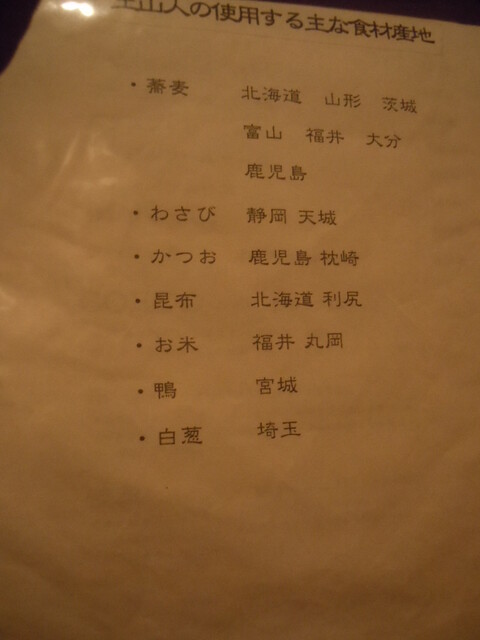 土山人の使用する主な食材産地
・蕎麦 北海道 山形 茨城
富山 福井 大分
鹿児島
・わさび 静岡 天城
・かつお 鹿児島 枕崎
・昆布 北海道 利尻
・お米 福井 丸岡
・鴨 宮城
・白葱 埼玉